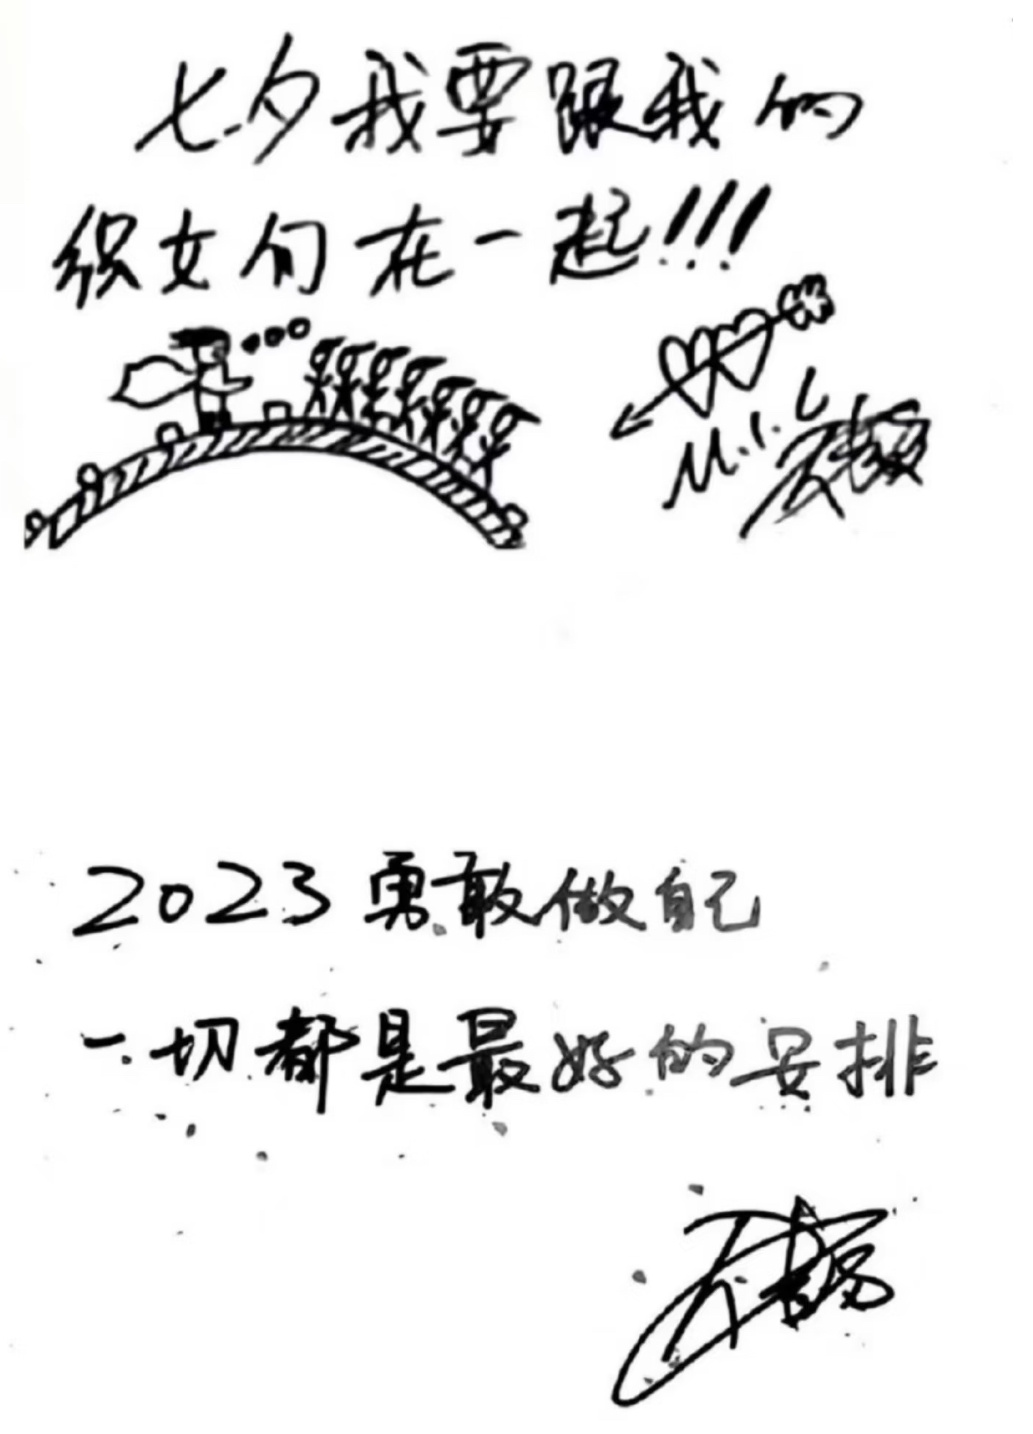 七夕我要跟我的
织女们在一起!!!
2023勇敢做自己
一切都是最好的安排